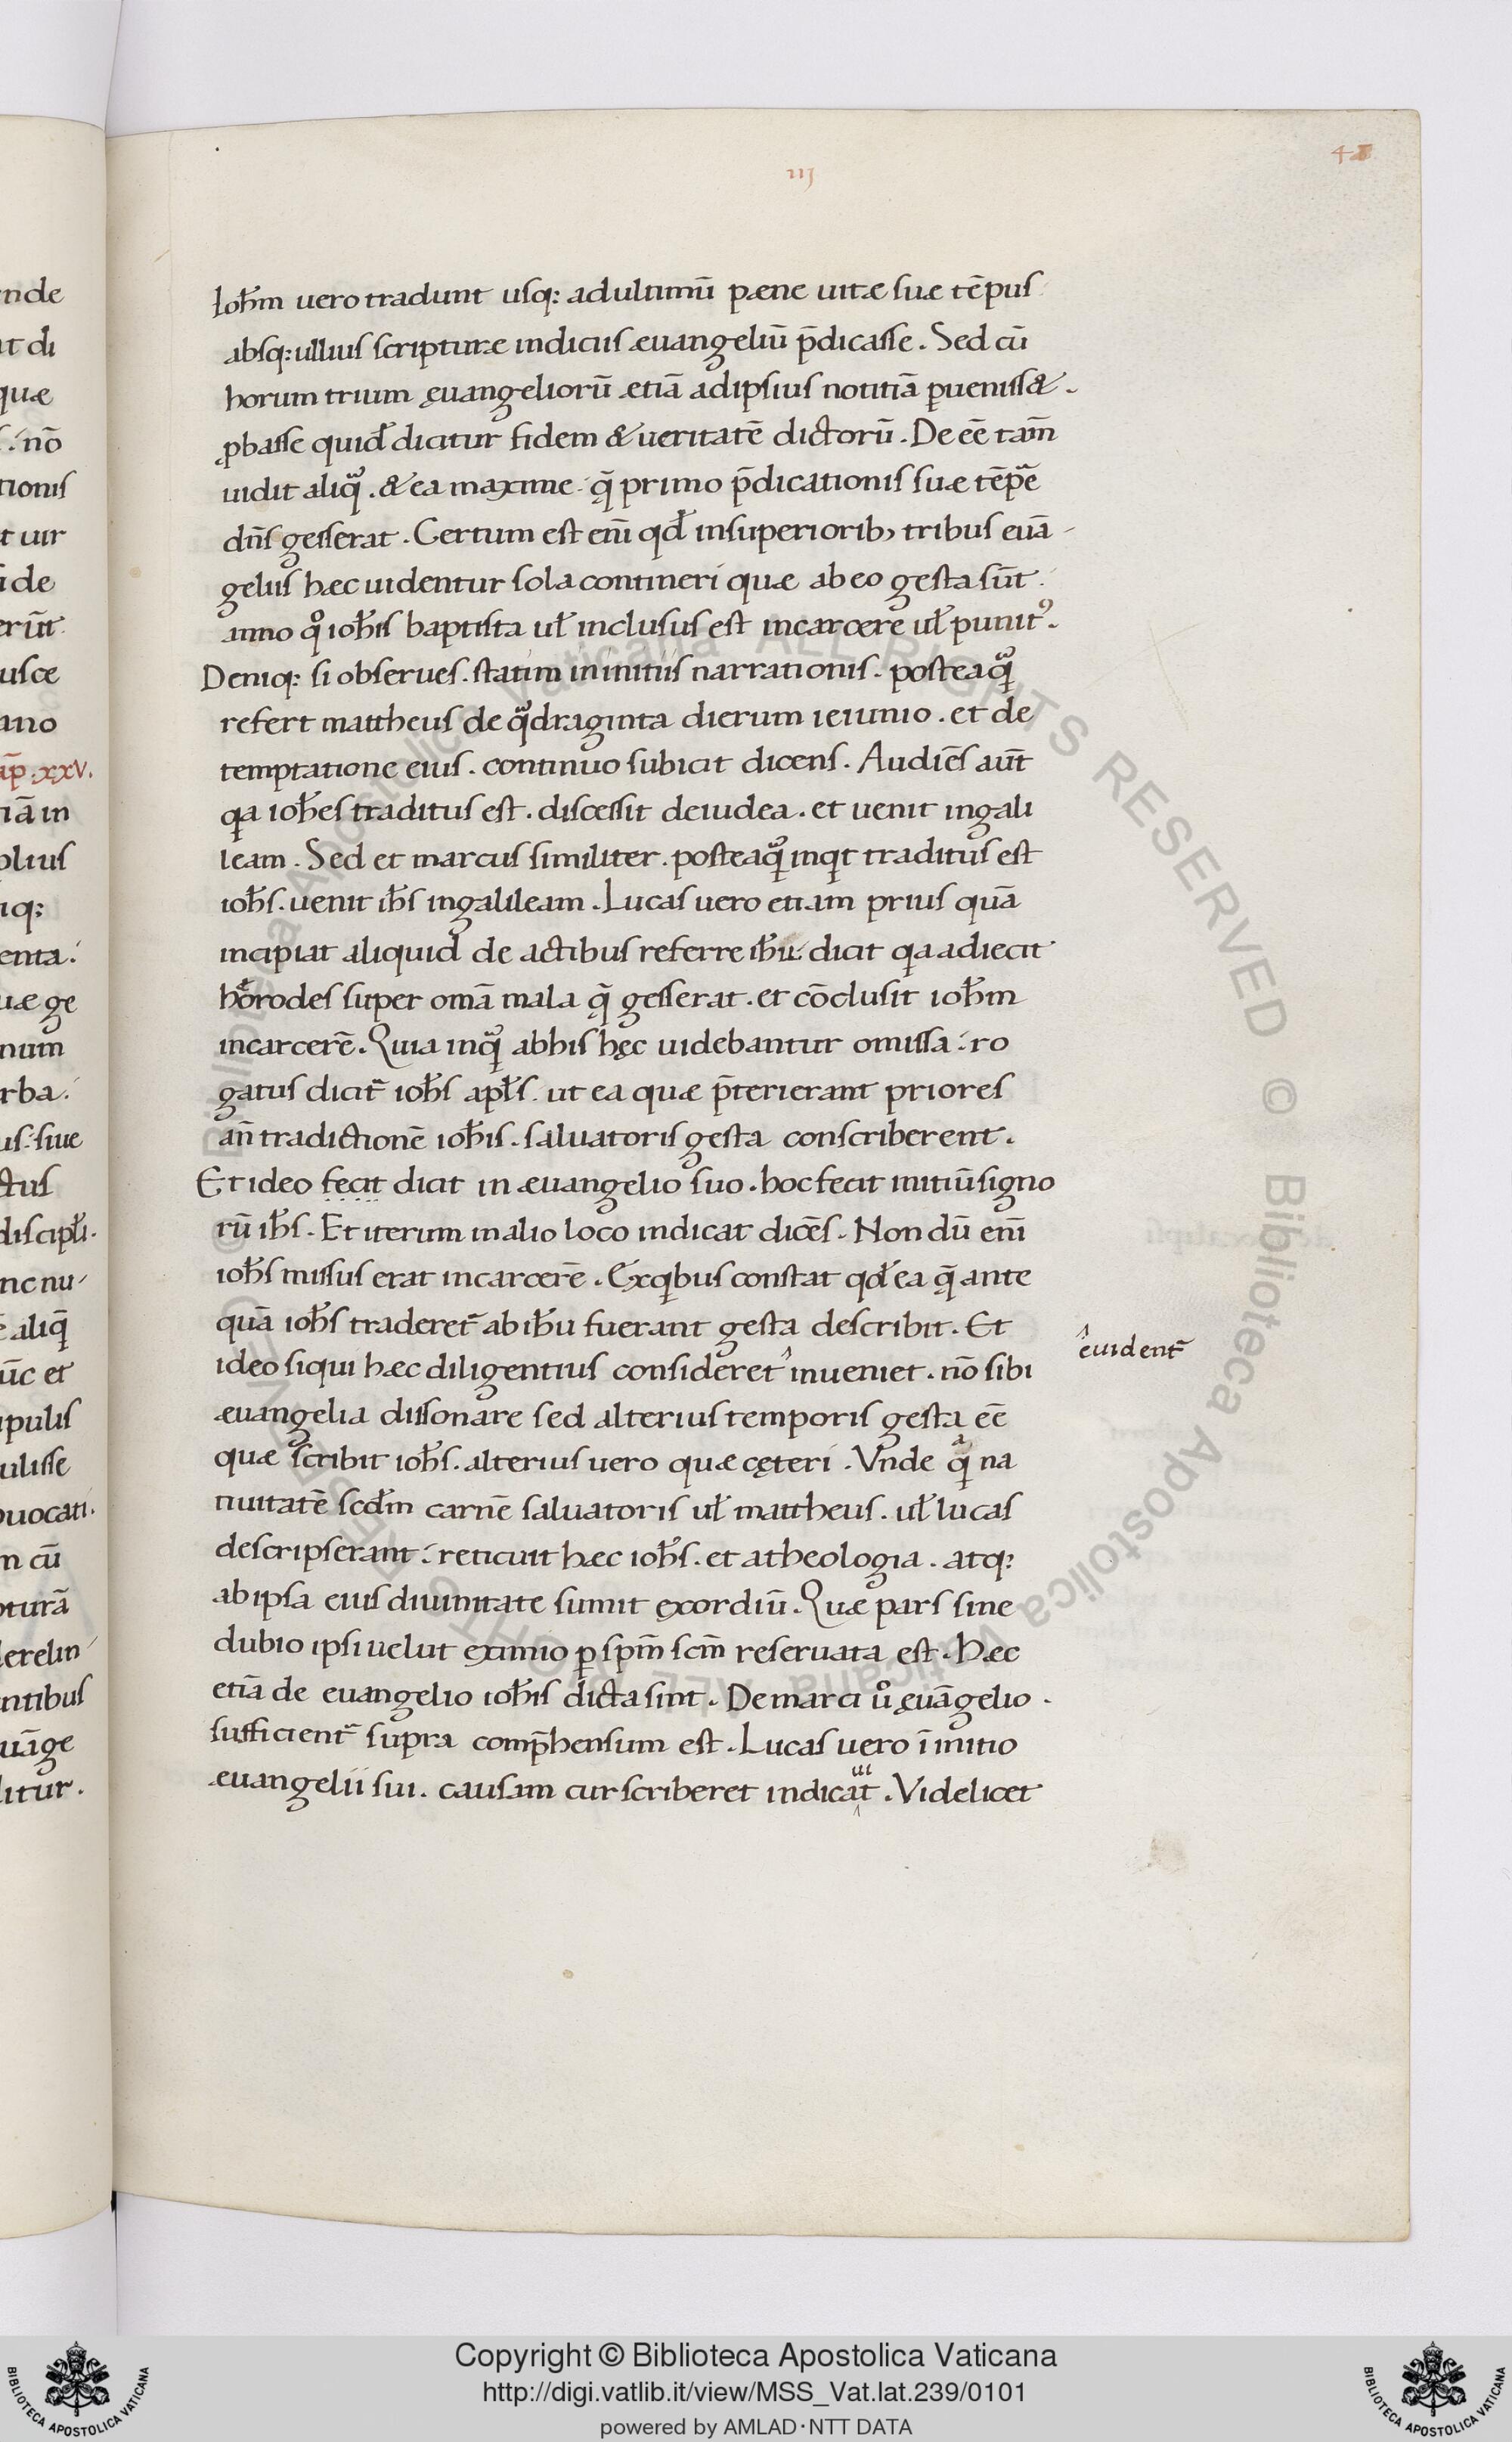 ııȷ
Ioħm uero tradunt usq: ad ultimū pæne uitæ suæ tēpus
absq: ullius scripturæ indiciis æuangeliū p̄dicasse. Sed cū
horum trium ęuangeliorū etiā ad ipsius notitiā ꝑueniss&.
ꝓbasse quidē dicitur fidem & ueritatē dictorū. Deeē tam̄
uidit aliqua. & ea maxime q̄ primo p̄dicationis suæ tēpr̄e
dn̄s gesserat. Certum est eni̅ qđ in superiorib; tribus euā
geliis hæc uidentur sola contineri quæ ab eo gesta sūt.
anno qo ioħis baptista uł inclusus est in carcere uł punit9.
Deniq: si obserues. statim in initiis narrationis. posteaqua
refert mattheus de quadraginta dierum ieiunio. et de
temptatione eius. continuo subicit dicens. Audiēs aūt
qa ioħes traditus est. discessit de iudea. et uenit in gali
leam. Sed et marcus similiter. posteaqua inqt traditus est
ioħs. uenit iħs in galileam. Lucas uero etiam prius quā
incipiat aliquid de actibus referre iħu. dicit qa adiecit
herodes super omā mala q̄ gesserat. et cōclusit ioħm
in carcerē. Quia inqua ab his hęc uidebantur omissa. ro
gatus dicit~ ioħs apłs. ut ea quæ p̄terierant priores
an̄ traditionē ioħis. saluatoris gesta conscriberent.
Et ideo fecit dicit in æuangelio suo. hoc fecit initiū signo
rū iħs. Et iterum in alio loco indicat dicēs. Non dū eni̅
ioħs missus erat in carcerē. Ex qibus constat qđ ea q̄ ante
quā ioħs traderet~ ab iħu fuerant gesta describit. Et
ideo siqui hæc diligentius consideret inueniet. nō sibi
euident~
æuangelia dissonare sed alterius temporis gesta eē
quæ scribit ioħs. alterius uero quæ cęteri. Vnde qa na
tiuitatē scđm carnē saluatoris uł mattheus. uł lucas
descripserant. reticuit hæc ioħs. et a theologia. atq:
ab ipsa eius diuinitate sumit exordiū. Quæ pars sine
dubio ipsi uelut eximio ꝑ spm̄ scm̄ reseruata est. Hæc
etiā de euangelio ioħis dicta sint. De marci uo ęuāgelio.
sufficient~ supra comp̄hensum est. Lucas uero ī initio
æuangelii sui. causam cur scriberet indicat. Videlicet
Copyright © Biblioteca Apostolica Vaticana
http://digi.vatlib.it/view/MSS_Vat.lat.239/0101
powered by AMLAD·NTT DATA
BIBLIOTECA APOSTOLICA VATICANA
BIBLIOTECA APOSTOLICA VATICANA